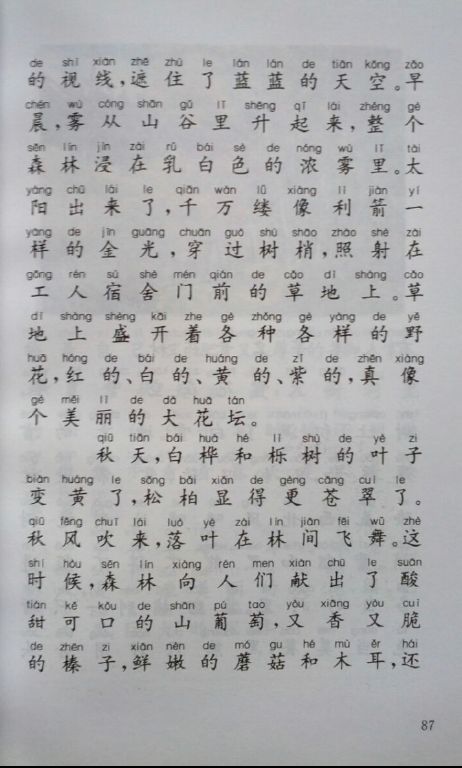 de shì xiàn zhē zhù le lán lán de tiān kōng zǎo
的视线,遮住了蓝蓝的天空。早
chén wù cóng shān gǔ lǐ shēng qǐ lái zhěng gè
晨,雾从山谷里升起来,整个
sēn lín jìn zài rǔ bái sè de nóng wù lǐ tài
森林浸在乳白色的浓雾里。太
yáng chū lái le qiān wàn lǚ xiàng lì jiàn yí
阳出来了,千万缕像利箭一
yàng de jīn guāng chuān guò shù shāo zhào shè zài
样的金光,穿过树梢,照射在
gōng rén sù shè mén qián de cǎo dì shàng cǎo
工人宿舍门前的草地上。草
dì shàng shèng kāi zhe gè zhǒng gè yàng de yě
地上盛开着各种各样的野
huā hóng de bái de huáng de zǐ de zhēn xiàng
花,红的、白的、黄的、紫的,真像
gè měi lì de dà huā tán
个美丽的大花坛。
qiū tiān bái huà hé lì shù de yè zi
秋天,白桦和栎树的叶子
biàn huáng le sōng bǎi xiǎn de gèng cāng cuì le
变黄了,松柏显得更苍翠了。
qiū fēng chuī lái luò yè zài lín jiān fēi wǔ zhè
秋风吹来,落叶在林间飞舞。这
shí hòu sēn lín xiàng rén men xiàn chū le suān
时候,森林向人们献出了酸
tián kě kǒu de shān pú tao yòu xiāng yòu cuì
甜可口的山葡萄,又香又脆
de zhēn zi xiān nèn de mó gu hé mù ěr hái
的榛子,鲜嫩的蘑菇和木耳,还
87